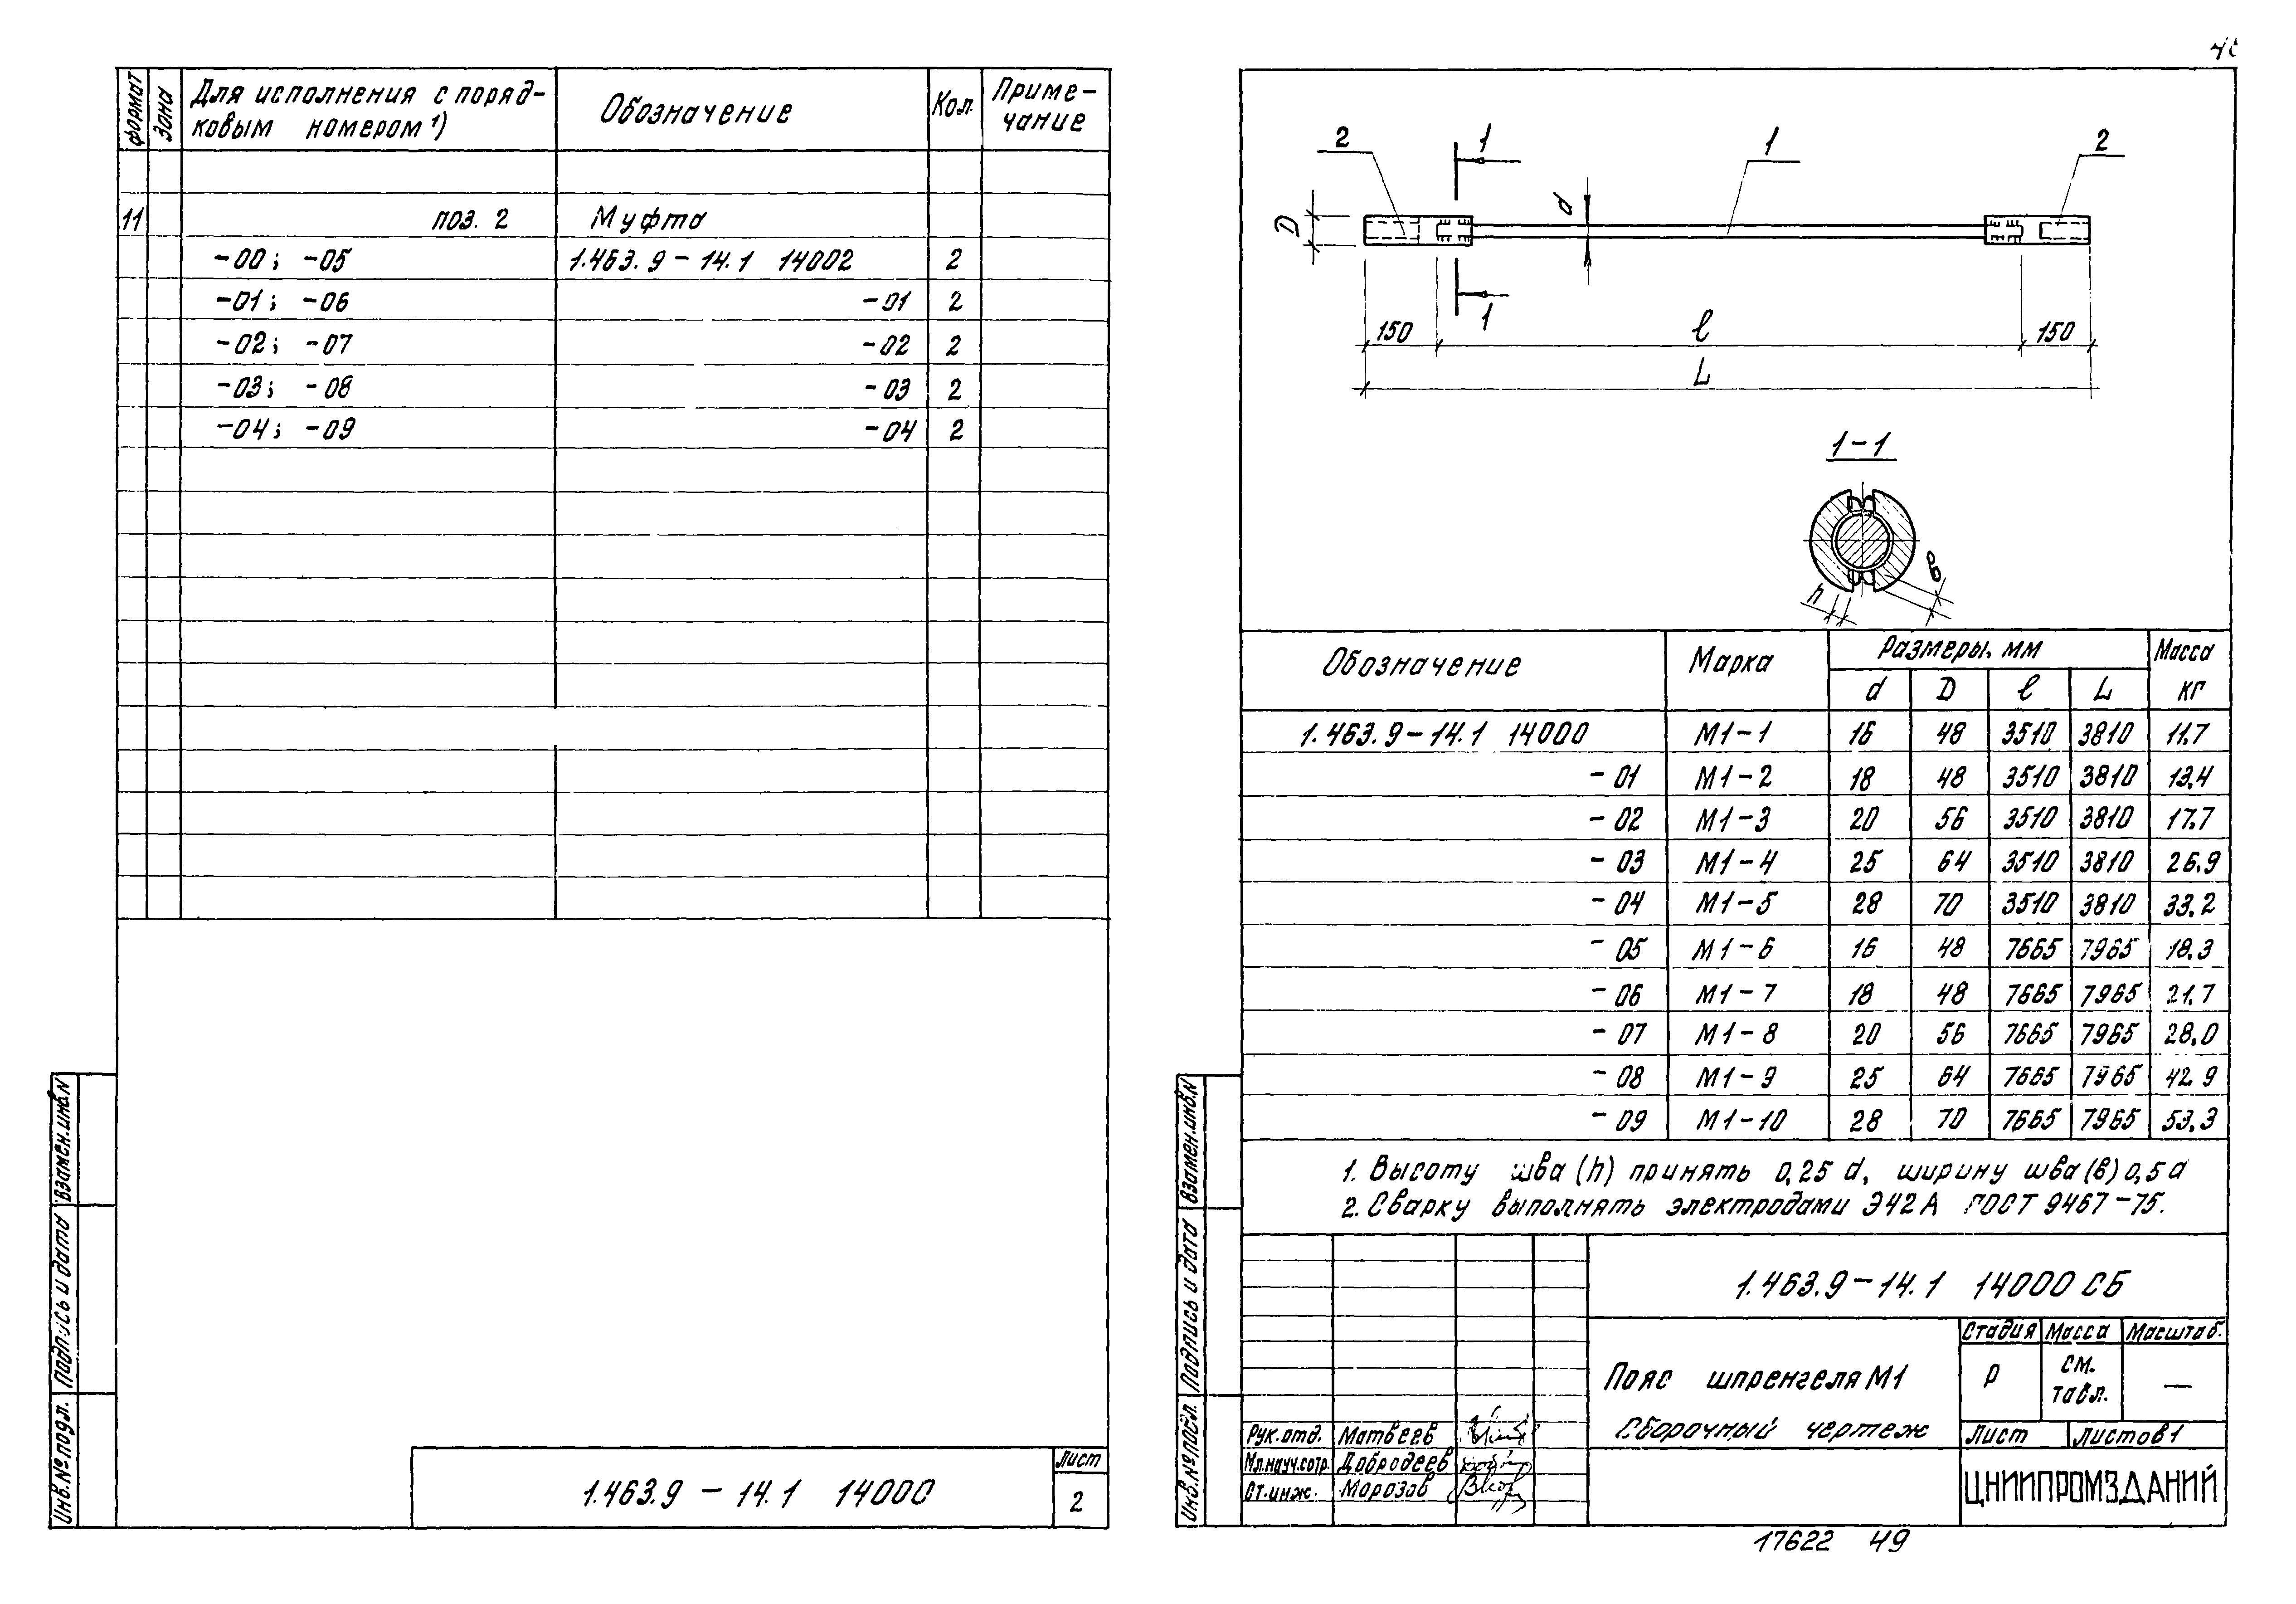 формат
Зона
Для исполнения с поряд-
ковым номером ¹)
Обозначение
Кол.
Приме-
чание
11 поз. 2 Муфта
-00; -05 1.463.9-14.1 14002 2
-01; -06 -01 2
-02; -07 -02 2
-03; -08 -03 2
-04; -09 -04 2
Взамен.инв.N
Подпись и дата
Инв.№подл.
1.463.9 - 14.1 14000
Лист
2
2 1 1 2
D d
1
150 ℓ 150
L
1-1
h в
Обозначение Марка Размеры, мм Масса
d D ℓ L кг
1.463.9-14.1 14000 М1-1 16 48 3510 3810 11.7
-01 М1-2 18 48 3510 3810 13,4
-02 М1-3 20 56 3510 3810 17.7
-03 М1-4 25 64 3510 3810 26.9
-04 М1-5 28 70 3510 3810 33.2
-05 М1-6 16 48 7665 7965 18.3
-06 М1-7 18 48 7665 7965 21.7
-07 М1-8 20 56 7665 7965 28.0
-08 М1-9 25 64 7665 7965 42.9
-09 М1-10 28 70 7665 7965 53,3
1. Высоту шва (h) принять 0,25 d, ширину шва (в) 0,5 d
2. Сварку выполнять электродами Э42А ГОСТ 9467-75.
Взамен.инв.N
Подпись и дата
Инв.№подл.
1.463.9-14.1 14000 СБ
Пояс шпренгеля М1
Сборочный чертеж
Стадия Масса Масштаб.
Р см. табл. —
Лист Листов 1
Рук.отд. Матвеев
Мл.науч.сотр. Добродеев
Ст.инж. Морозов
ЦНИИПРОМЗДАНИЙ
17622 49